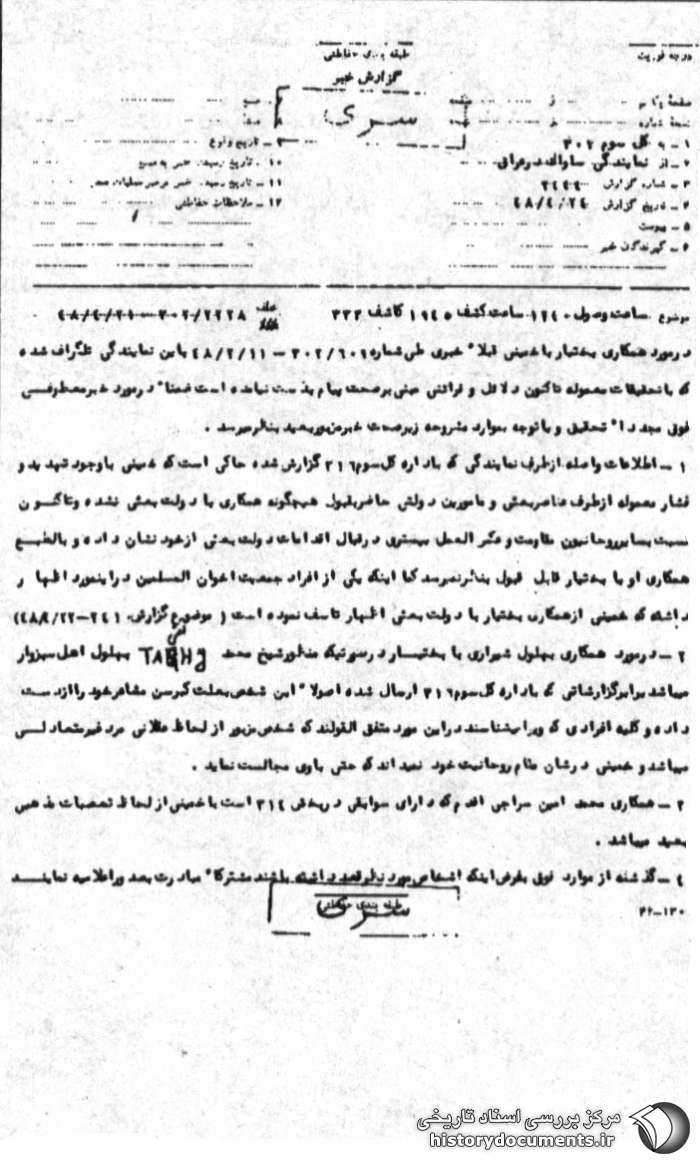 درجه فوریت
طبقه بندی حفاظتی
گزارش خبر
سری
۱ - به کل سوم ۳۰۲
۲ - از نمایندگی ساواک در عراق
۳ - شماره گزارش ۲۴۴۴
۴ - تاریخ گزارش ۴۸/۴/۲۴
۵ - پیوست
۶ - گیرندگان خبر
۹ - تاریخ وقوع
۱۰ - تاریخ رسیدن خبر به منبع
۱۱ - تاریخ رسیدن خبر به رهبر عملیات
۱۲ - ملاحظات حفاظتی
موضوع ساعت وصول ۱۲۴۰ ساعت کشف ۱۹۴۵ کاشف ۳۳۲ عطف ۳۰۲/۲۲۲۸ - ۴۸/۴/۲۱
در مورد همکاری بختیار با خمینی قبلا" خبری طی شماره ۳۰۲/۶۰۹ - ۴۸/۲/۱۱ باین نمایندگی تلگراف شده
که با تحقیقات معموله تاکنون دلائل و قرائنی مبنی بر صحت پیام بدست نیامده است ضمنا" در مورد خبر معطوفی
فوق مجددا" تحقیق و با توجه بموارد مشروحه زیر صحت خبر مزبور بعید بنظر میرسد .
۱ - اطلاعات واصله از طرف نمایندگی که باداره کل سوم ۳۱۶ گزارش شده حاکی است که خمینی با وجود تهدید و
فشار معموله از طرف عناصر بعثی و مامورین دولتی حاضر بقبول هیچگونه همکاری با دولت بعثی نشده و تاکنون
نسبت بسایر روحانیون مقاومت و عکس العمل بیشتری در قبال اقدامات دولت بعثی از خود نشان داده و بالطبع
همکاری او با بختیار قابل قبول بنظر نمیرسد کما اینکه یکی از افراد جمعیت اخوان المسلمین در اینمورد اظهار
داشته که خمینی از همکاری بختیار با دولت بعثی اظهار تاسف نموده است ( موضوع گزارش ۲۴۱ - ۴۸/۴/۲۲)
۲ - در مورد همکاری بهلول شیرازی با بختیار در صورتیکه منظور شیخ محمد تقی بهلول اهل سبزوار
میباشد برابر گزارشاتی که باداره کل سوم ۳۱۶ ارسال شده اصولا" این شخص بعلت کبر سن مشاعر خود را از دست
داده و کلیه افرادی که ویرا میشناسند در این مورد متفق القولند که شخص مزبور از لحاظ عقلانی مرد غیر متعادلی
میباشد و خمینی در شان مقام روحانیت خود نمیداند که حتی با وی مجالست نماید .
۳ - همکاری محمد امین سراجی اقدم که دارای سوابقی در بخش ۳۱۴ است با خمینی از لحاظ تعصبات مذهبی
بعید میباشد .
۴ - گذشته از موارد فوق بفرض اینکه اشخاص مورد نظر قصد داشته باشند مشترکا" مبادرت بصدور اعلامیه نمایند
۴۶-۱۳۰
طبقه بندی حفاظتی
سری
مرکز بررسی اسناد تاریخی
historydocuments.ir